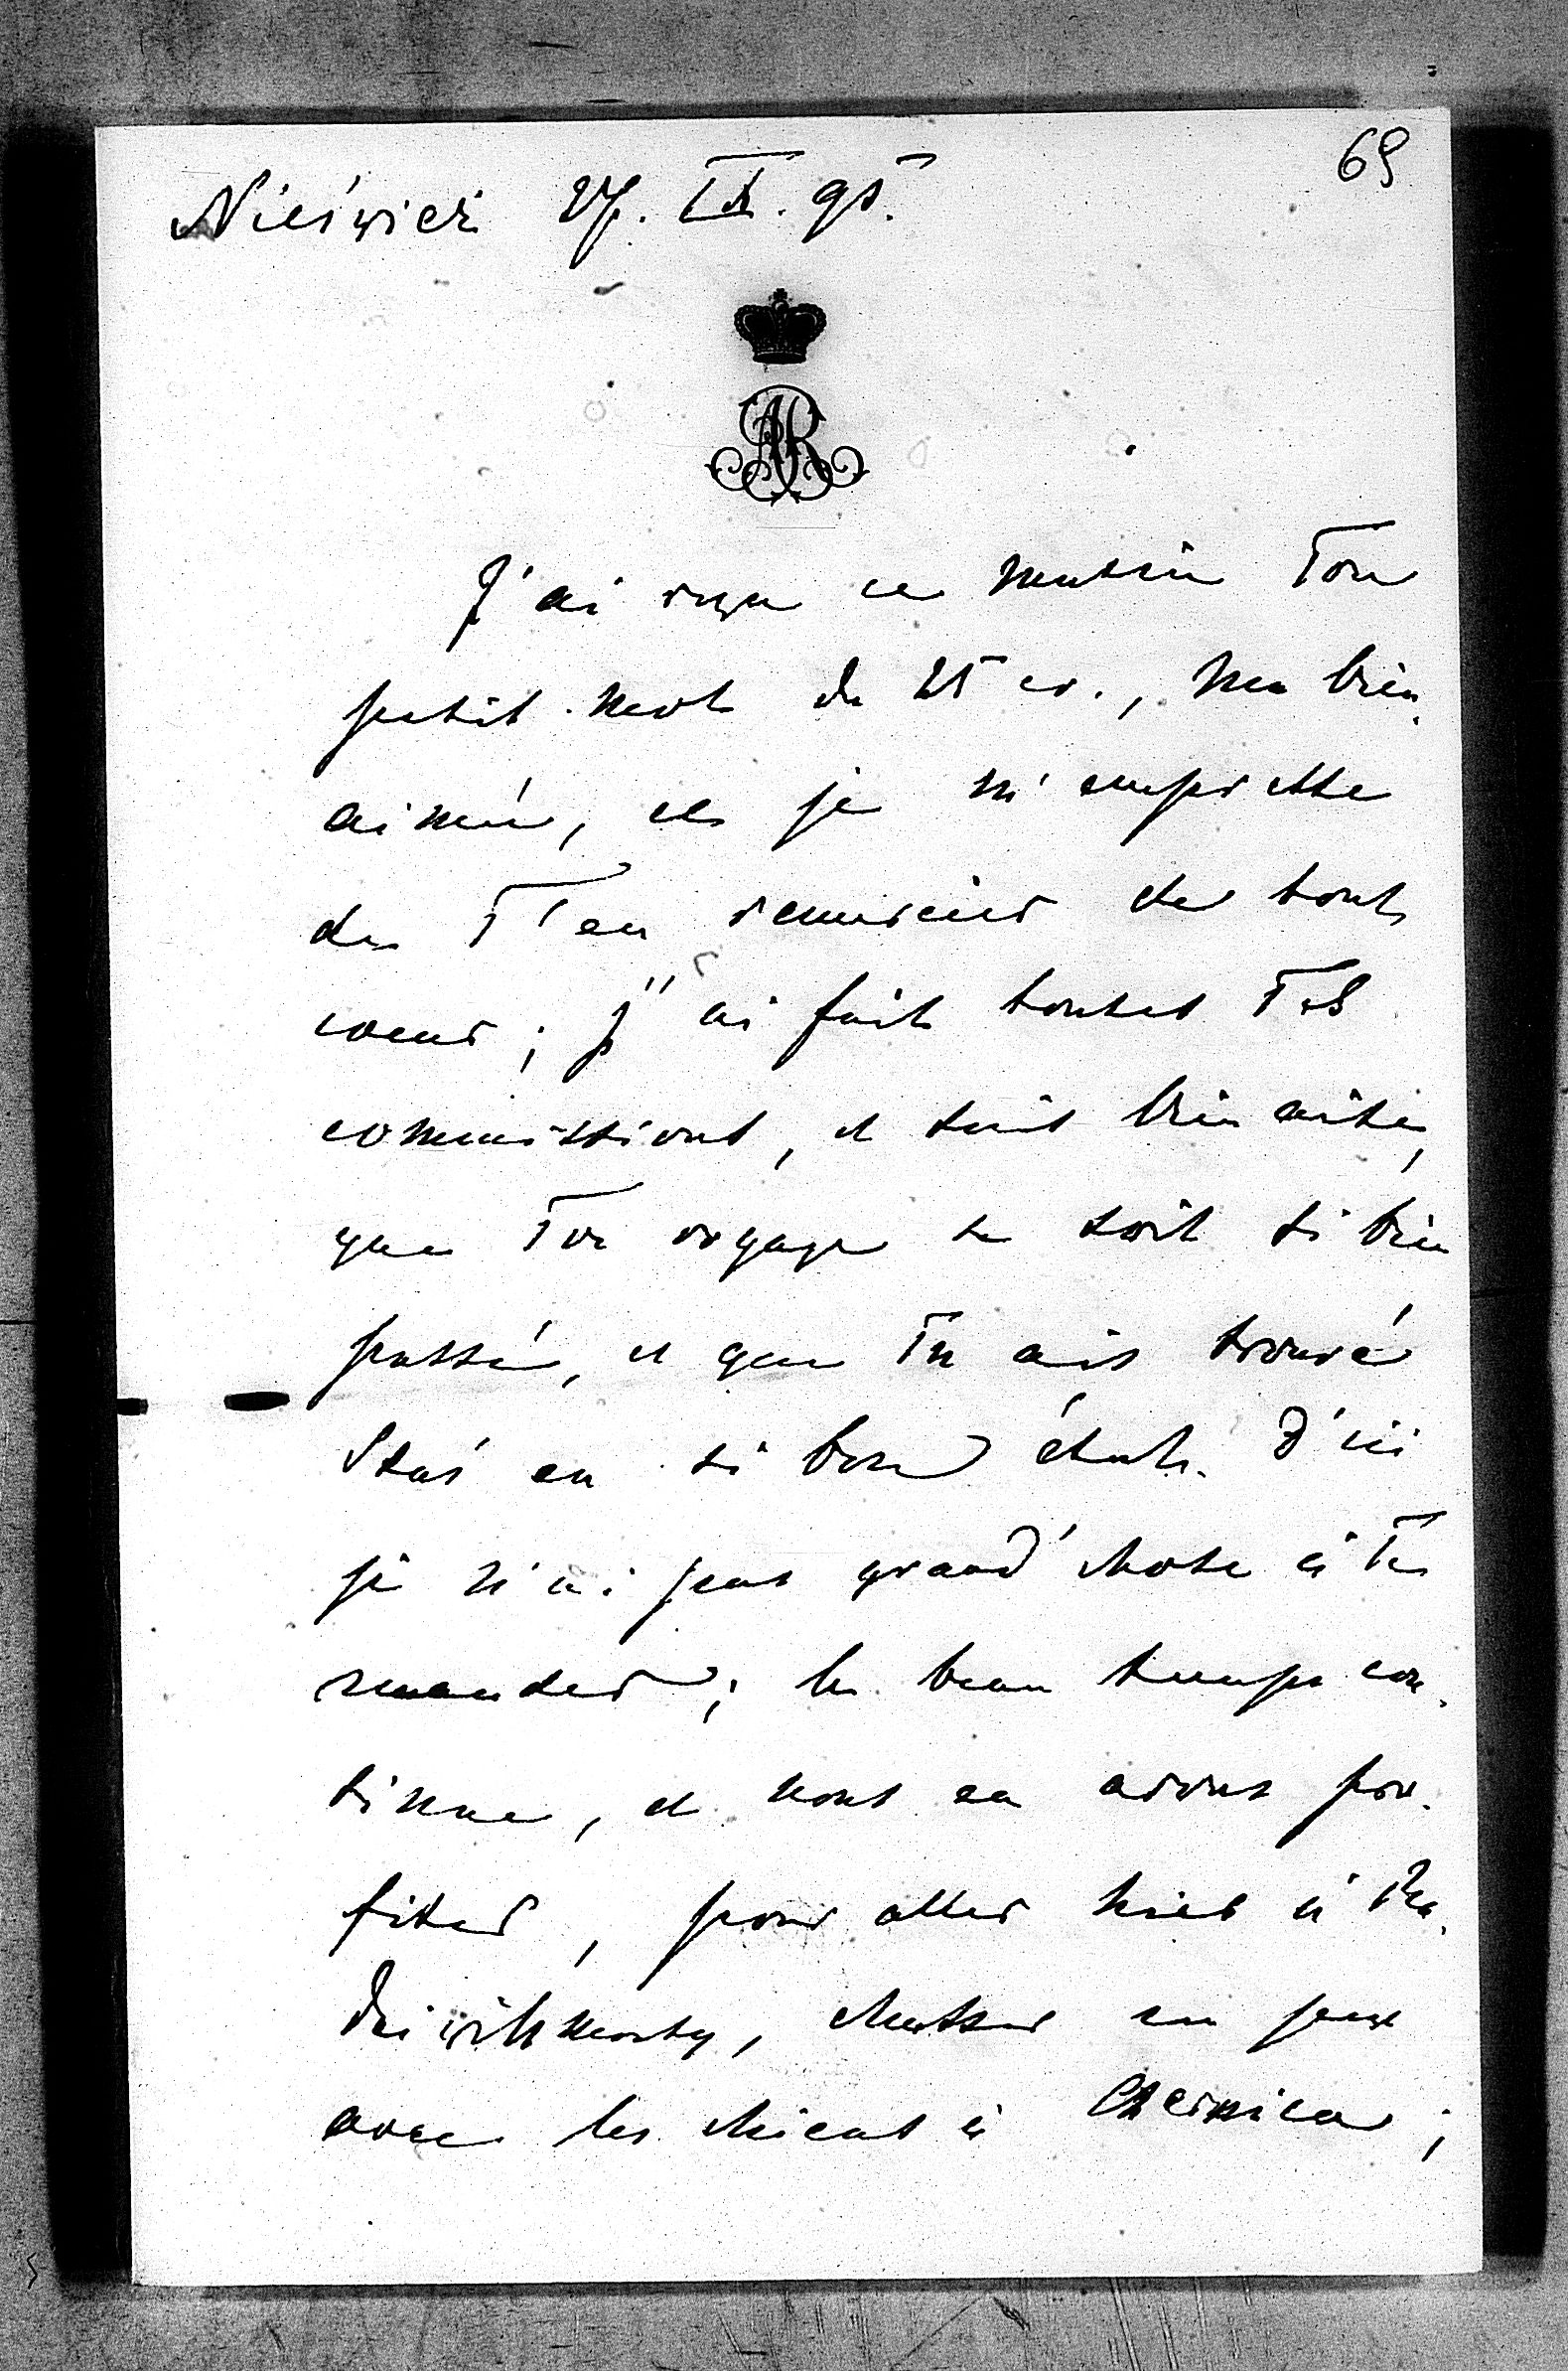 69
Nieśwież 27. IX. 95.
AR
J'ai reçu ce matin Ton
petit mot du 25 cr., ma bien
aimée, et je m'empresse
de T'en remercier de tout
coeur; j'ai fait toutes Tes
commissions, et suis bien aise,
que Ton voyage se soit si bien
passé, et que Tu ais trouvé
Staś en si bon état. D'ici
je n'ai pas grand'chose à Te
mander; le beau temps con-
tinue, et nous en avons pro-
fiter, pour aller hier à Ra-
dziwiłłmonty, chasser un peu
avec les chiens à ;